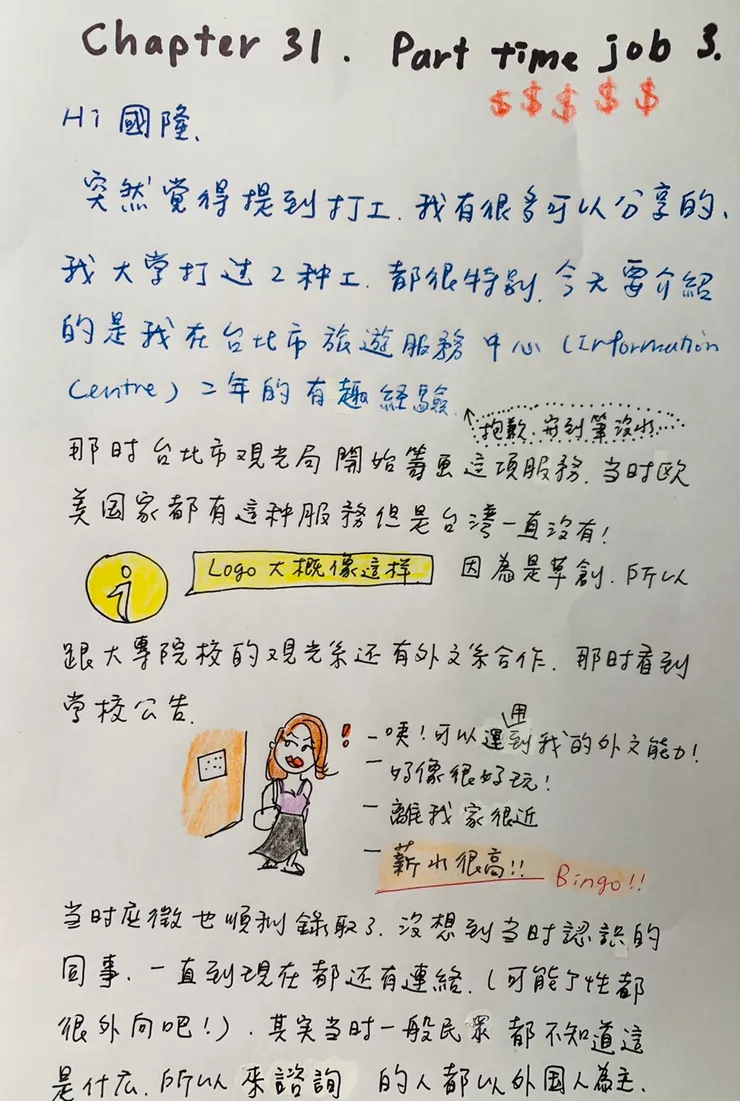 Chapter 31. Part time job 3.
$ $ $ $ $
Hi 國隆,
突然覺得提到打工.我有很多可以分享的、
我大学打过2种工.都很特別.今天要介紹
的是我在台北市旅遊服務中心(Information
Centre)二年的有趣經驗.
抱歉.寫到筆沒水..
那时台北市观光局開始籌画這項服務.当时欧
美国家都有這种服務但是台湾一直沒有!
i
Logo大概像這样.
因為是草創.所以
跟大專院校的观光系还有外文系合作.那时看到
学校公告.
!
用
-咦!可以運到我的外文能力!
-好像很好玩!
-離我家很近
-薪水很高!!
Bingo!!
当时应徵也順利錄取了.沒想到当时認識的
同事.一直到现在都还有連絡.(可能个性都
很外向吧!).其实当时一般民眾都不知道這
是什么.所以來諮詢的人都以外国人為主.